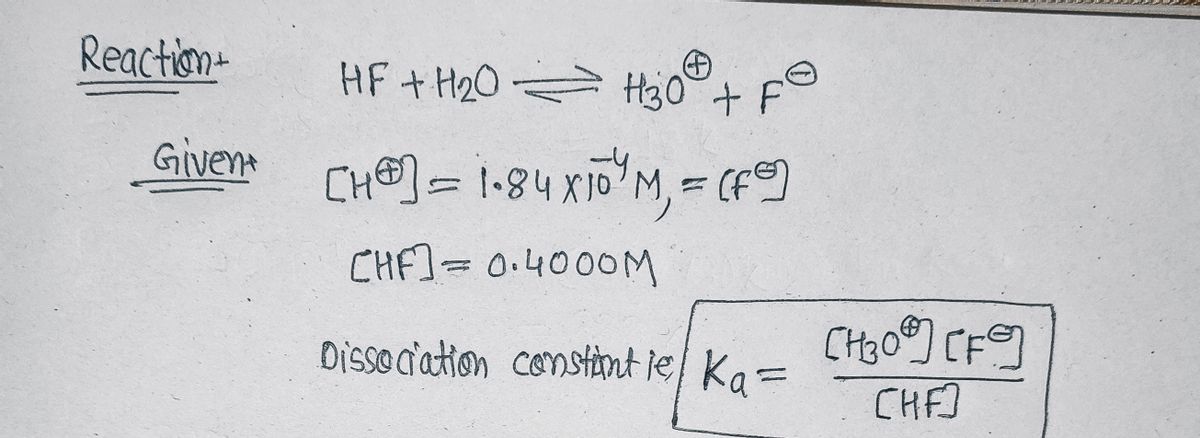 Reaction→ HF + H2O ⇌ H3O⊕ + F⊖
Given→ [H⊕] = 1.84 x 10⁻⁴ M, = [F⊖]
[HF] = 0.4000M
Dissociation constant ie, Ka = [H3O⊕] [F⊖] / [HF]